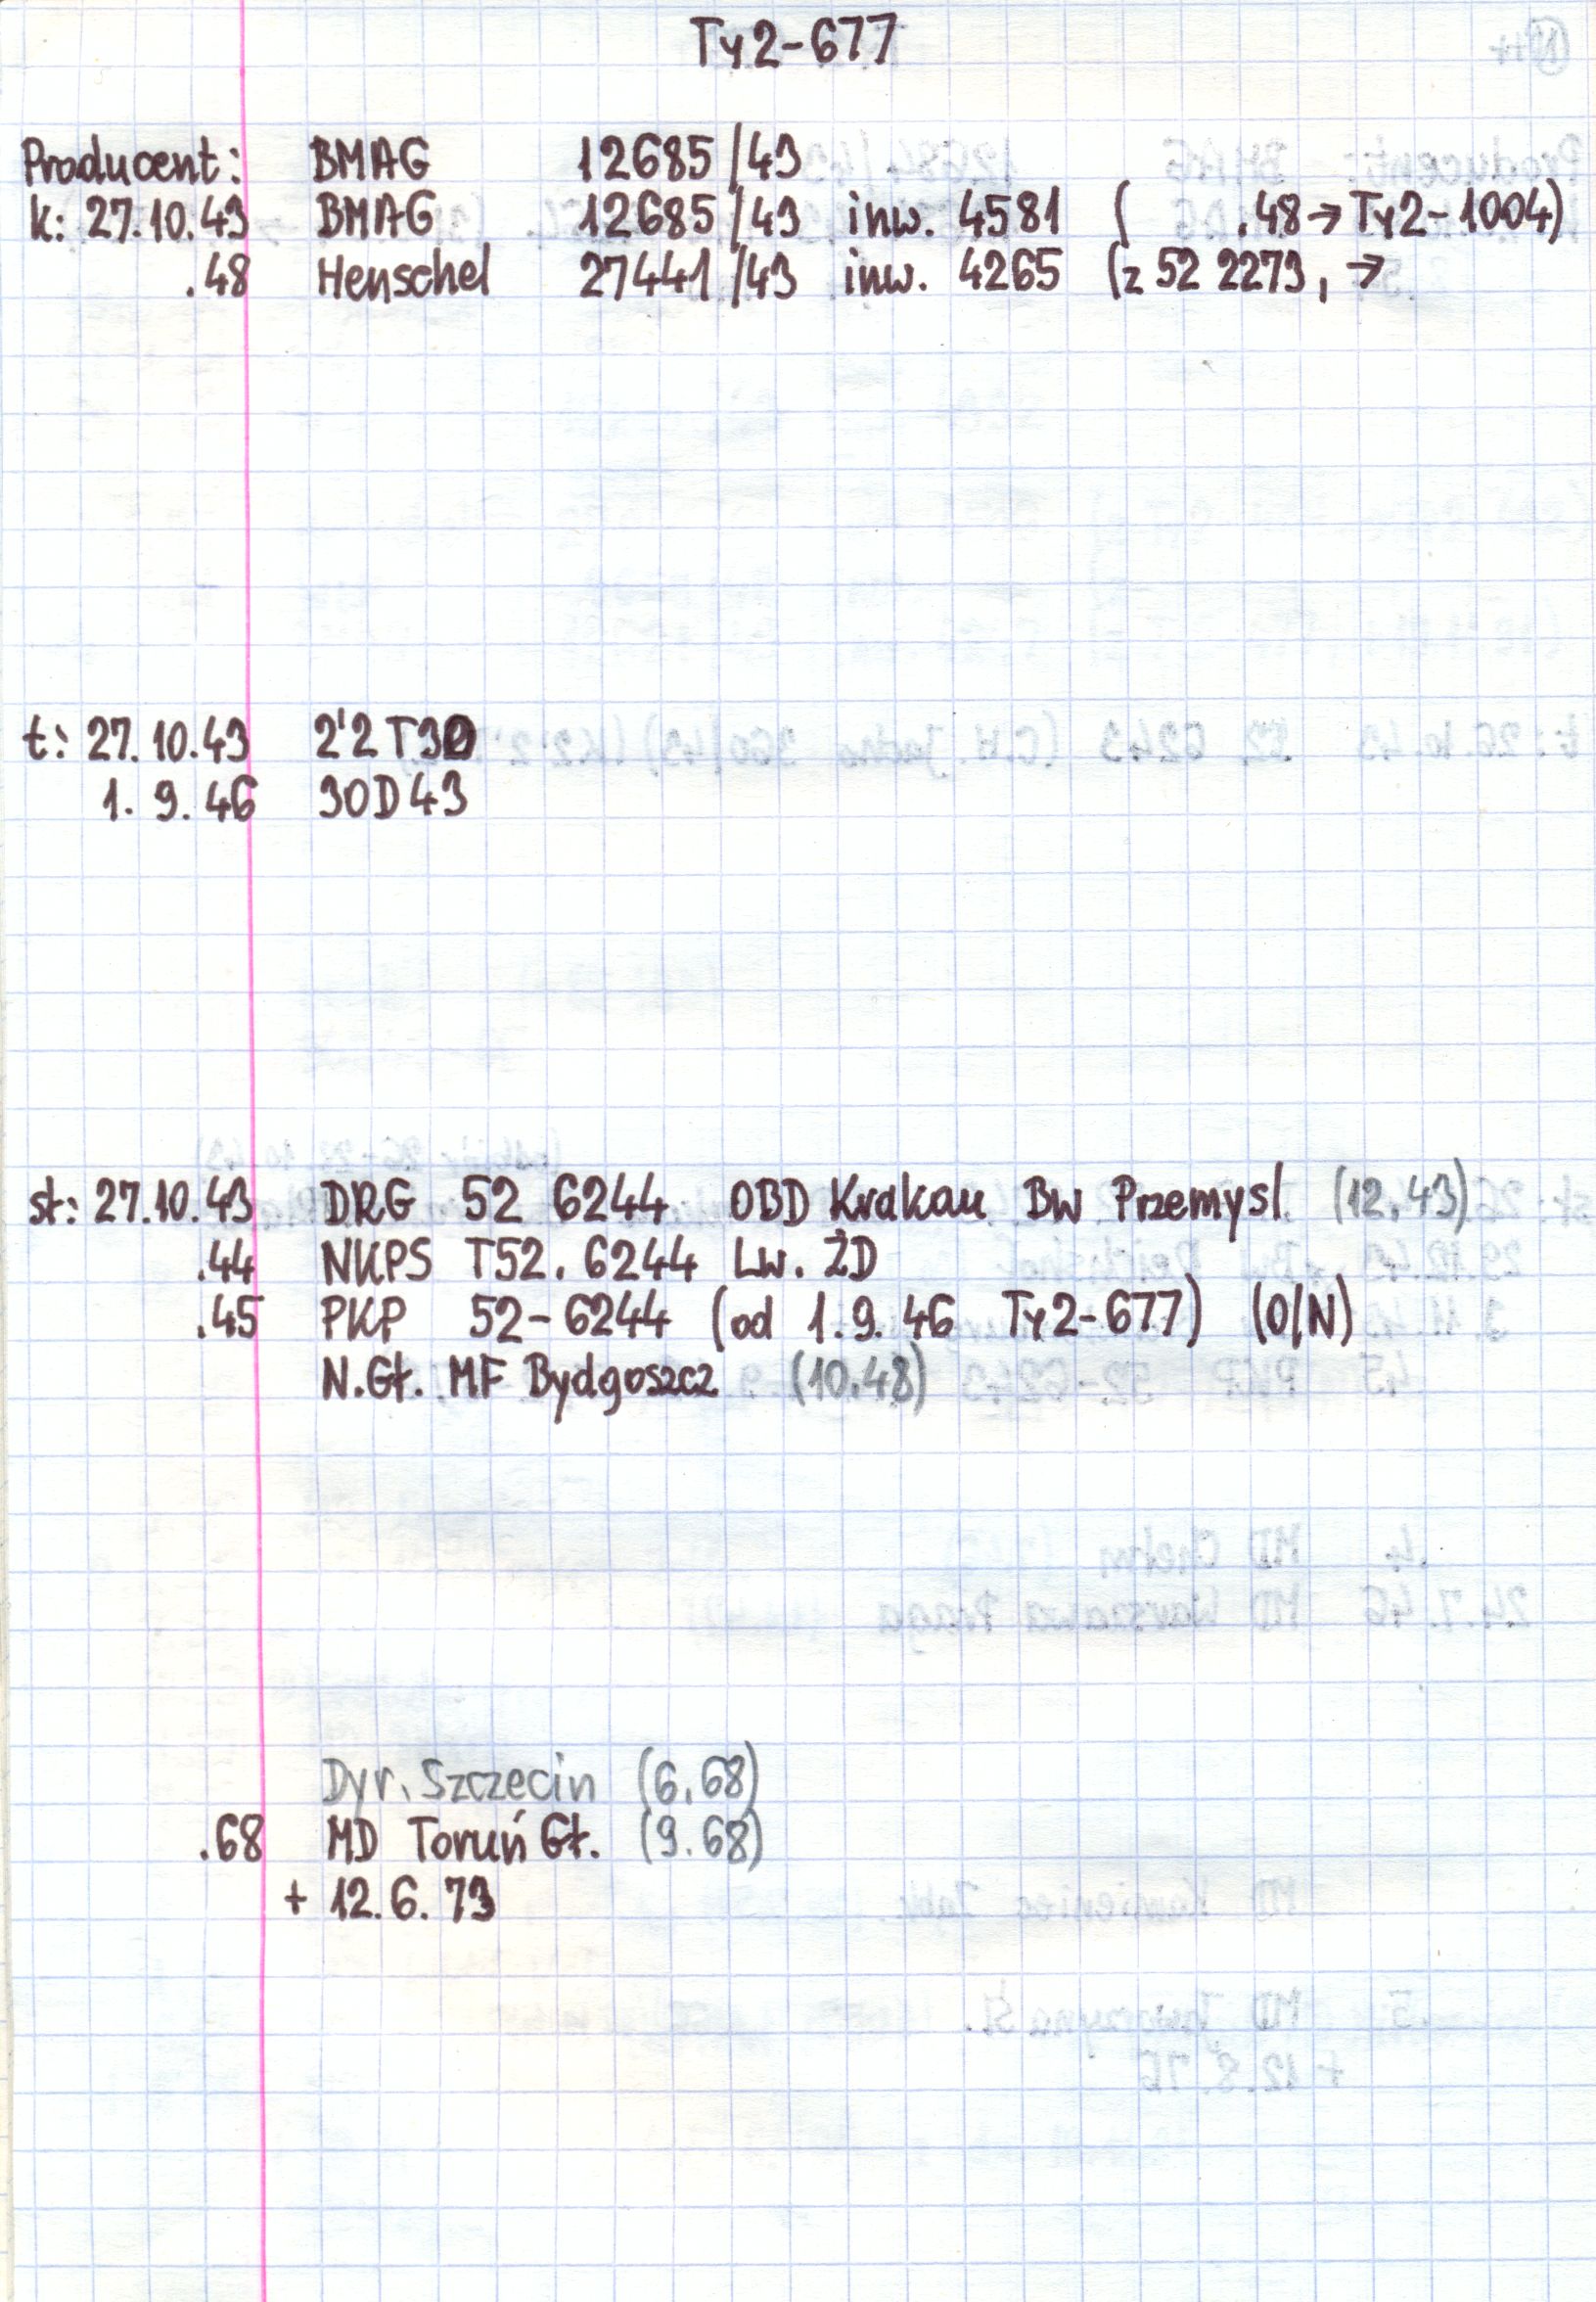 Ty2-677
Producent: BMAG 12685/43
k: 27.10.43 BMAG 12685/43 inw. 4581 ( .48→Ty2-1004)
.48 Henschel 27441/43 inw. 4265 (z 52 2273, →
t: 27.10.43 2'2 T30
1. 9. 46 30D43
st: 27.10.43 DRG 52 6244 OBD Krakau Bw Przemysl (12.43)
.44 NKPS T52.6244 Lw. ŻD
.45 PKP 52-6244 (od 1.9.46 Ty2-677) (O/N)
N.Gł. MF Bydgoszcz (10.48)
Dyr. Szczecin (6.68)
.68 MD Toruń Gł. (9.68)
+ 12.6.73